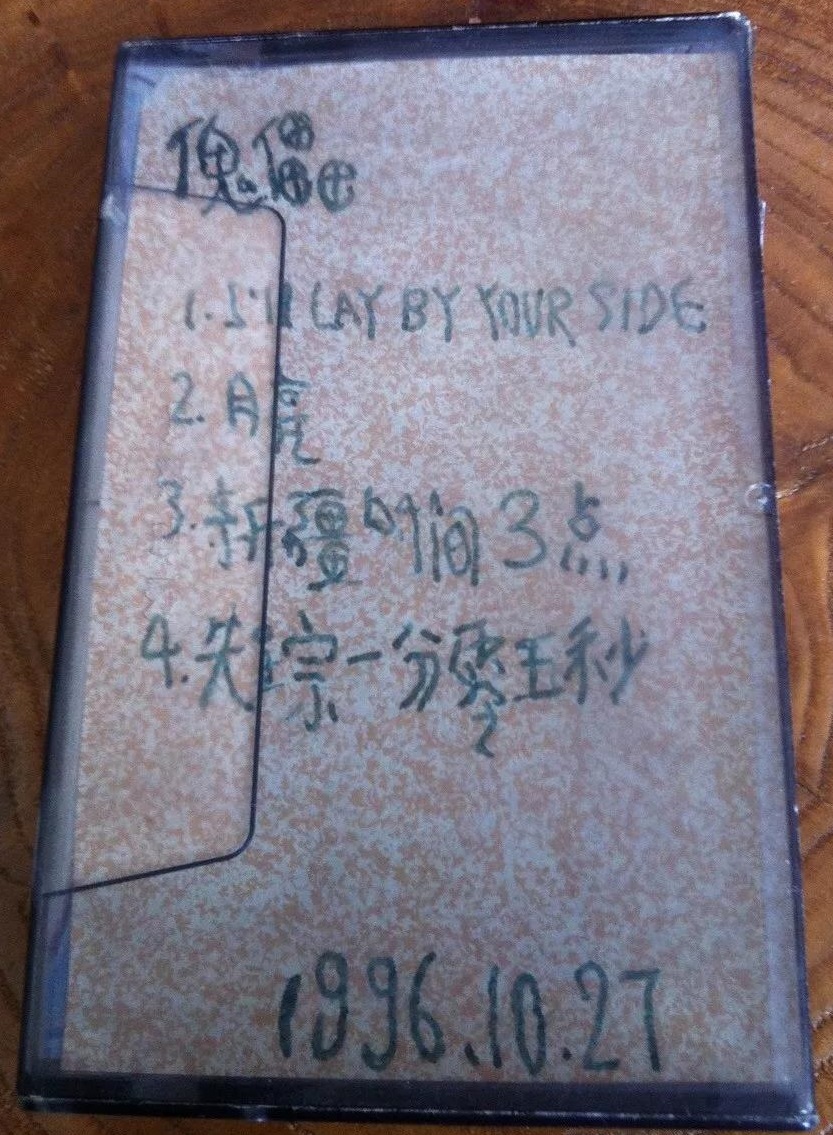 傀儡
1. I'll LAY BY YOUR SIDE
2. 月亮
3. 新疆时间3点
4. 失踪一分零五秒
1996.10.27